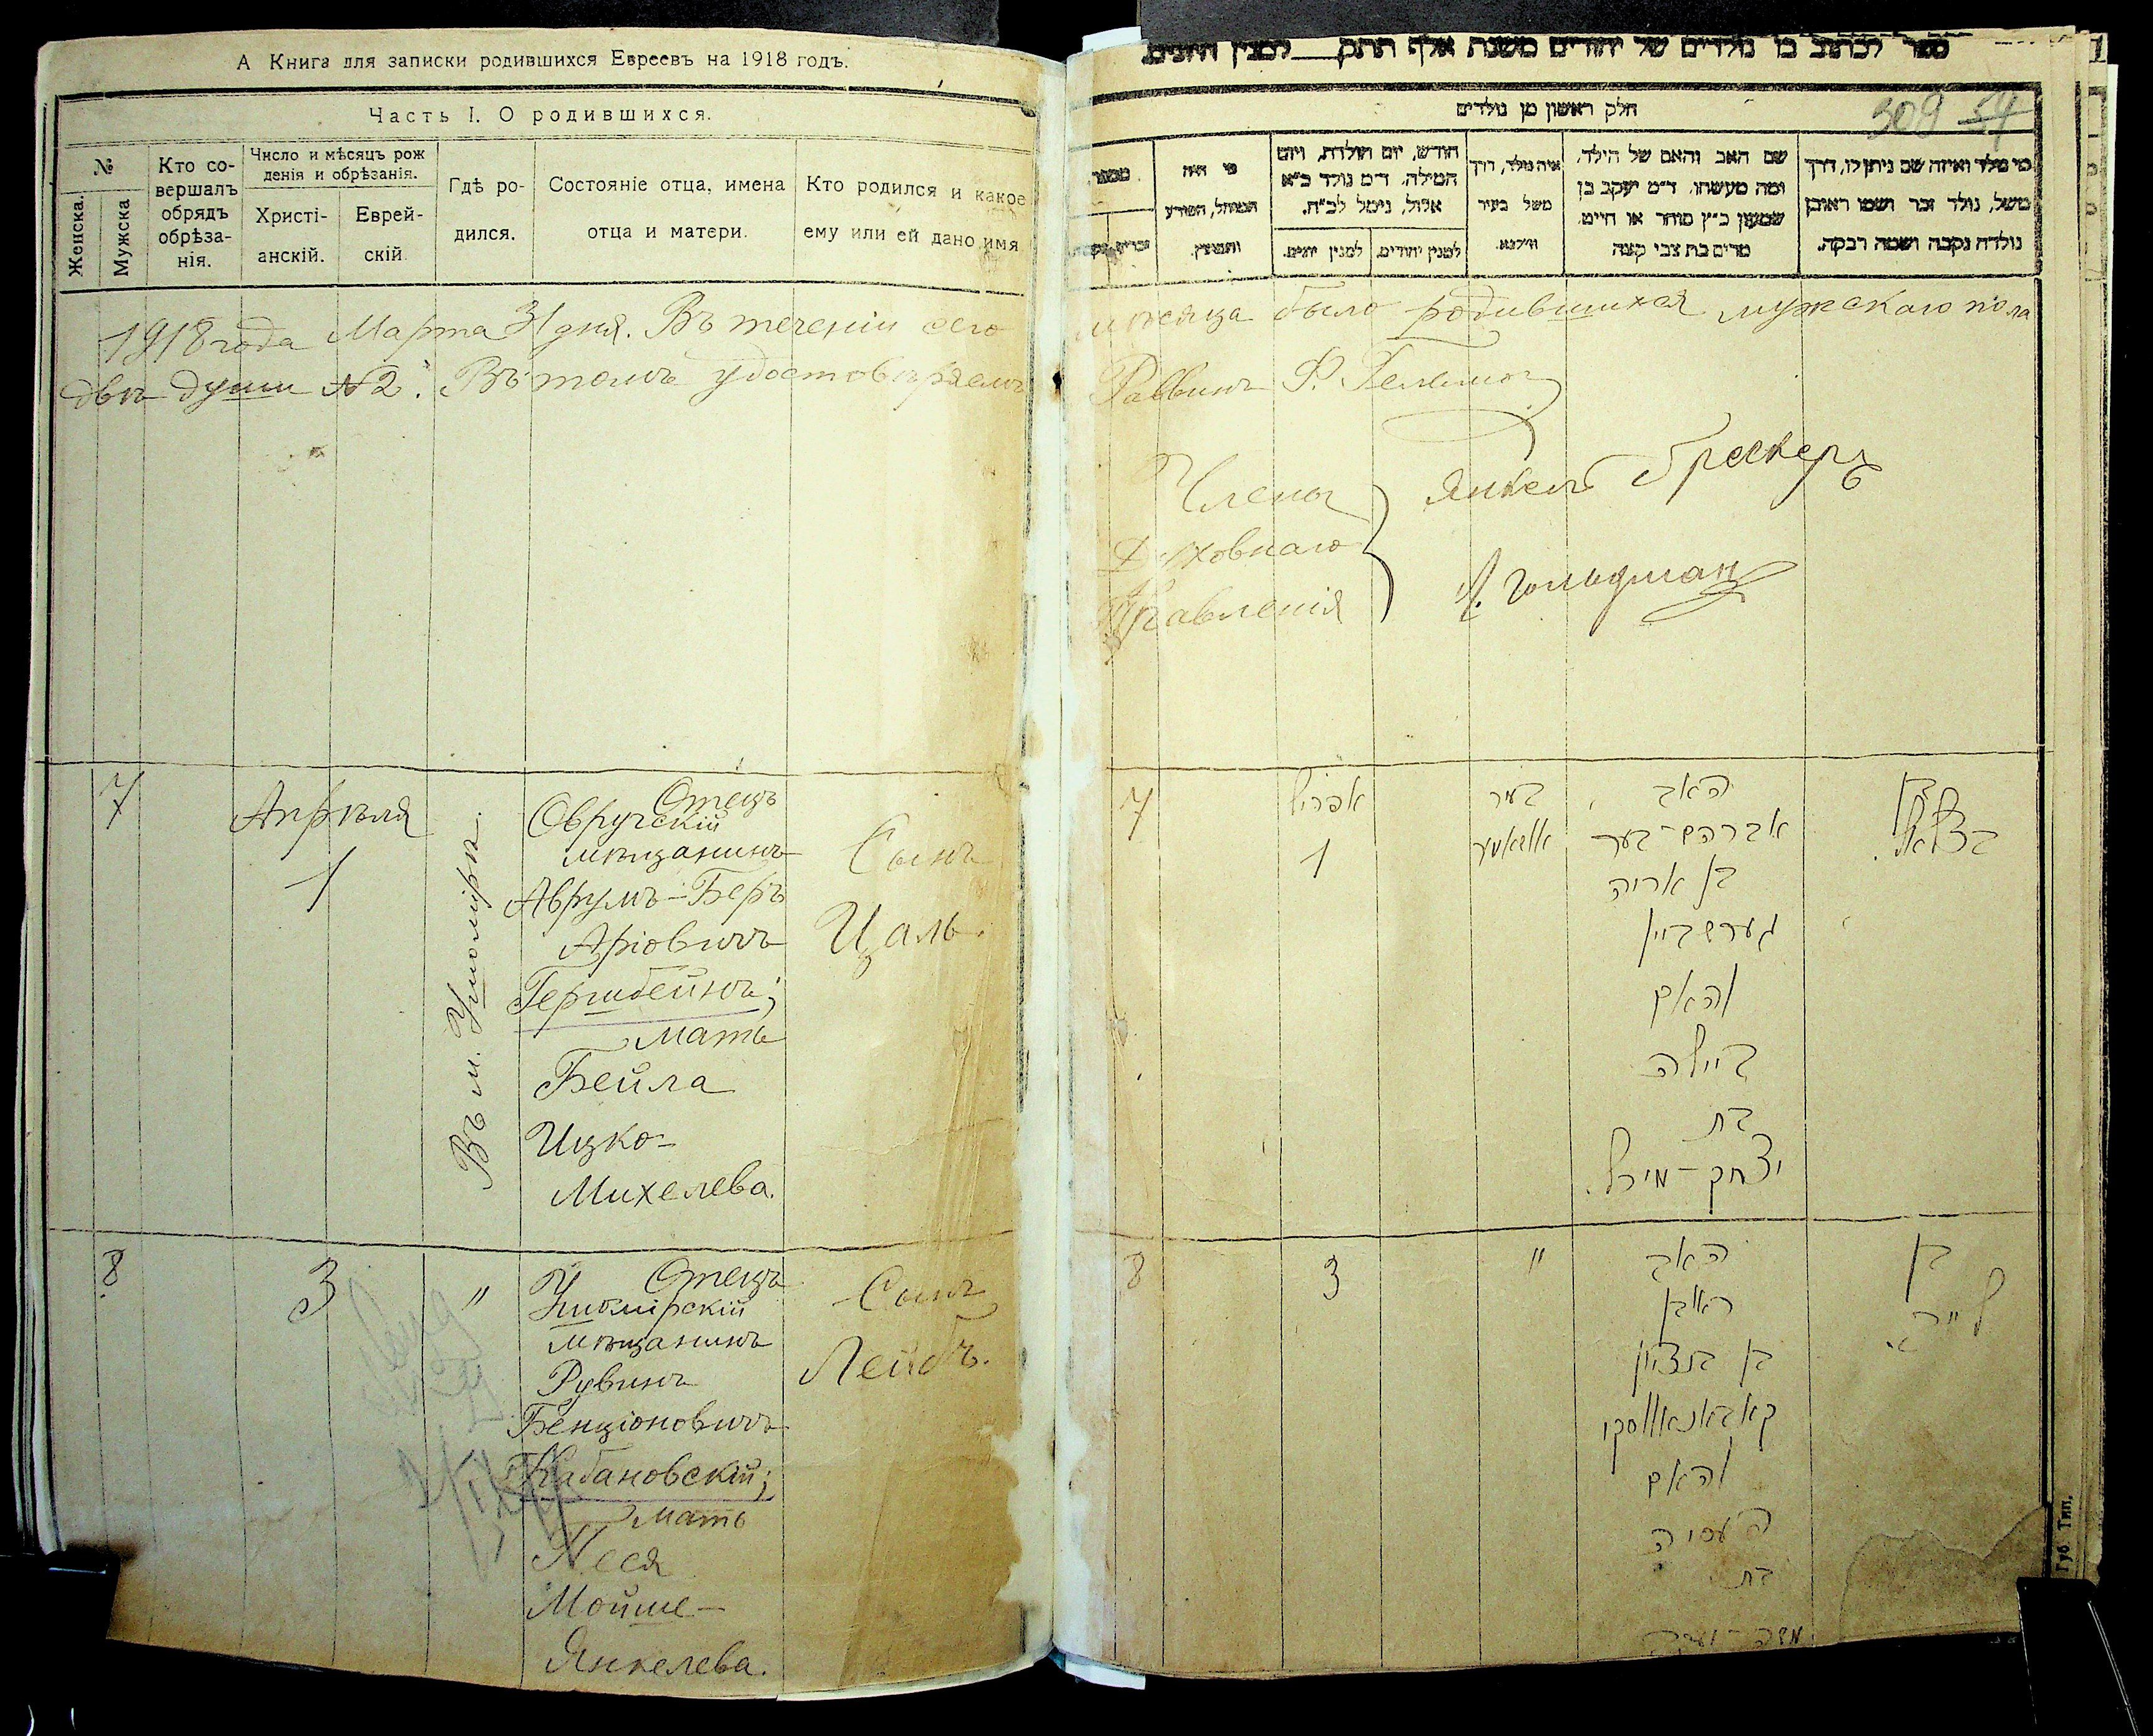 А Книга для записки родившихся Евреевъ на 1918 годъ.
Часть I. О родившихся.
№
Женска.
Мужска
Кто со-
вершалъ
обрядъ
обрѣза-
нія.
Число и мѣсяцъ рож
денія и обрѣзанія.
Христі-
анскій.
Еврей-
скій
Гдѣ ро-
дился.
Состояніе отца, имена
отца и матери.
Кто родился и какое
ему или ей дано имя
1918 года Марта 31 дня. Въ теченіи сего
двѣ души № 2. Въ томъ удостовѣряемъ
7
Апрѣля
1
Въ м. Ушомірѣ.
Отецъ
Овручскій
мѣщанинъ
Аврумъ-Беръ
Аріовичъ
Гершбейнъ;
Мать
Бейла
Ицко-
Михелева.
Сынъ
Цаль.
8
3
"
Отецъ
Ушомірскій
мѣщанинъ
Рувинъ
Бенціоновичъ
Кабановскій;
Мать
Песя
Мойше-
Янкелева.
Сынъ
Лейбъ.
ספר לכתוב בו נולדים של יהודים משנת אלף תתק למנין היונים
חלק ראשון מן נולדים
309 54
מספר
מי היה
המוהל, הפורע
והמוצץ
חודש, יום הולדת, ויום
המילה. ד״מ נולד כ״א
אלול, נימול לכ״ח.
למנין יונים.
למנין יהודים.
איה נולד, דרך
משל בעיר
ווילנא.
שם האב והאם של הילד,
ומה מעשהו. ד״מ יעקב בן
שמעון כ״ץ סוחר או חייט.
מרים בת צבי קצה
מי נולד ואיזה שם ניתן לו, דרך
משל, נולד זכר ושמו ראובן
נולדה נקבה ושמה רבקה.
мѣсяца было родившихся мужскаго пола
Раввинъ
Члены
Духовнаго
Правленія
Янкель Брескеръ
Гольдман
7
אפריל
1
בער
אושאמיר
האב
אברהם־בער
בן אריה
גערשביין
והאם
ביילה
בת
יצחק־מיכל.
בן
בצלאל.
8
3
"
האב
ראובן
בן בנציון
קאבאנאווסקי
והאם
בת
בן
לייב
Губ. Тип.